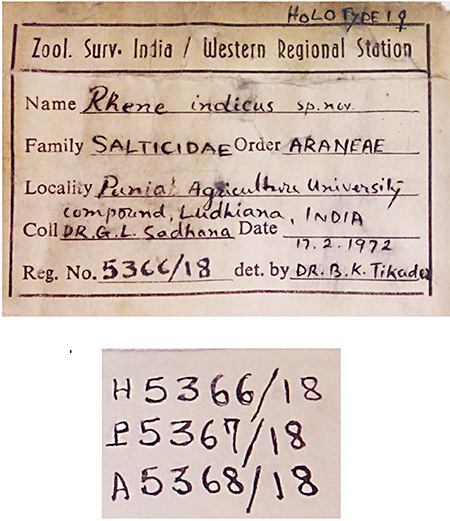 HOLOTYPE 1 ♀
Zool. Surv. India / Western Regional Station
Name Rhene indicus sp. nov.
Family SALTICIDAE Order ARANEAE
Locality Punjab Agriculture University
compound, Ludhiana, INDIA
Coll DR. G. L. Sadhana Date 17.2.1972
Reg. No. 5366/18 det. by DR. B. K. Tikader
H 5366/18
P 5367/18
A 5368/18